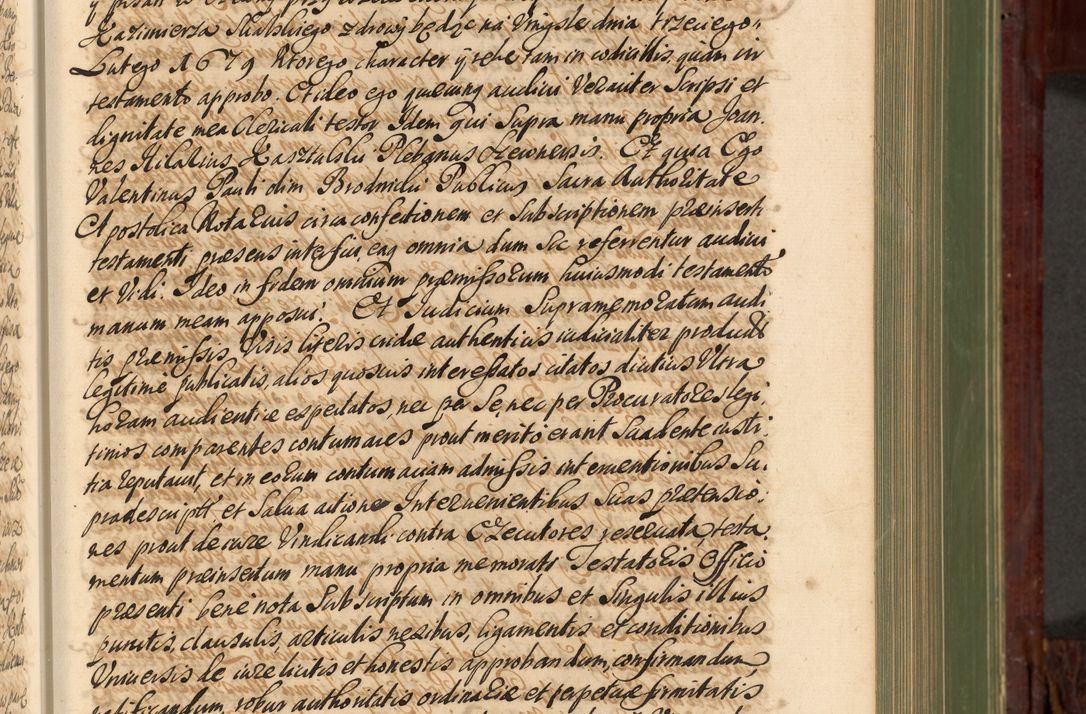 Kazimierza Skalskiego zdrowy będąc na Umyśle dnia trzeciego
Lutego 1679 Ktorego character y rękę tam in codicillis, quam in
testamento approbo. Et ideo ego quemq audivi Veraciter Scripsi et
dignitate mea Clericali testor Idem qui Supra manu propria Joan
nes Hilarius Kasztalski Plebanus Et quia Ego
Valentinus Pauli olim Brodnicki Publicus Sacra Authoritate
Apostolica Notarius circa confectionem et Subscriptionem præinserti
testamenti præsens interfui, eaq omnia dum Sic referrentur audivi
et Vidi. Ideo in fidem omnium præmissorum huiusmodi testamento
manum meam apposui. Et Iudicium Supramemoratum audi
tis præmissis, Visis literis inde authenticis iudicialiter productis
legitimé publicatis, alios quosvis interessatos citatos diutius Ultra
horam audientiæ expectatos, nec per Se, nec per Procuratores legi
timos comparentes contumaces prout merito erant Suadente iusti
tia reputavit, et in eorum contumaciam admissis interventionibus Su
pradescriptt et Salva actione Intervenientibus Suas prætensio
nes prout de iure Vindicandi contra Executores reservata testa
mentum præinsertum manu propria memorati Testatoris Officio
præsenti bené nota Subscriptum in omnibus et Singulis illius
punctis, clausulis, articulis nexibus, ligamentis et conditionibus
Universis de iure licitis et honestis approbandum, confirmandum
ratificandum, robur authoritatis ordinariæ et perpetuæ firmitatis